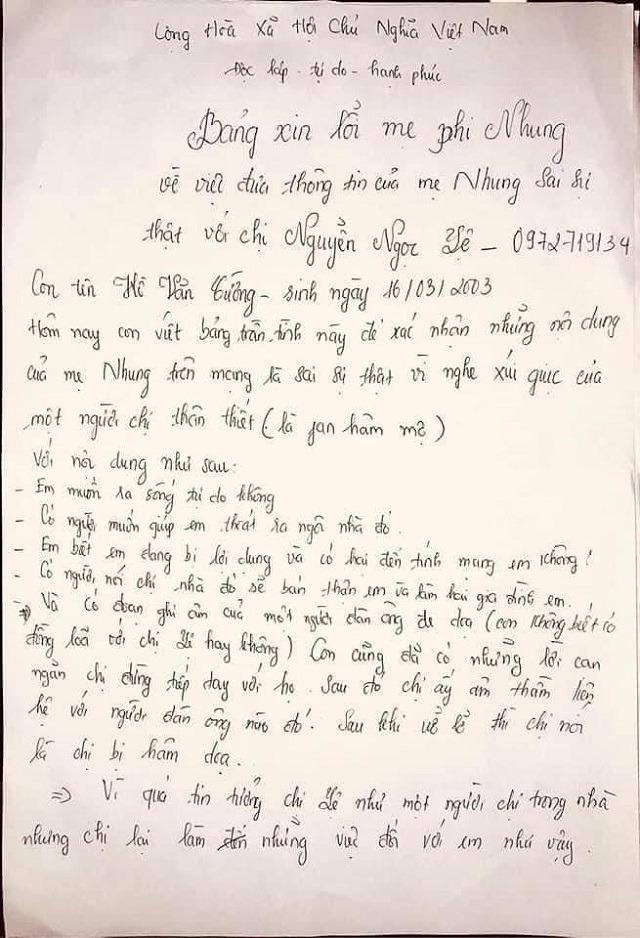 Cộng Hoà Xã Hội Chủ Nghĩa Việt Nam
Độc lập - tự do - hạnh phúc
Bảng xin lổi mẹ phi Nhung
về việt đưa thông tin của mẹ Nhung sai sị
thật với chị Nguyễn Ngọc Yệ – 0972719134
Con tên Hồ Văn Cường - sinh ngày 16/03/2003
Hôm nay con viết bảng trần tình này để xác nhận những nội dung
của mẹ Nhung trên mạng là sai sị thật vì nghe xúi giục của
một người chị thân thiết (là fan hâm mộ)
Với nội dung như sau:
- Em muốn ra sống tự do không
- Có người muốn giúp em thoát ra ngôi nhà đó.
- Em biết em đang bị lời dụng và có hại đến tính mạng em không!
- Có người nói chị nhà đó sẽ bán thân em và làm hại gia đình em.
=> Và có đoạn ghi âm của một người đàn ông đe dọa (con không biết có
đồng loã với chị Yê hay không) Con cũng đã có những lời can
ngăn chị đừng tiếp day với họ. Sau đó chị ấy âm thầm liên
hệ với người đàn ông nào đó. Sau khi vở lở thì chị nói
là chị bị hâm dọa.
=> Vì quá tin tưởng chị Yê như một người chị trong nhà
nhưng chị lại làm những việt đối với em như vậy.